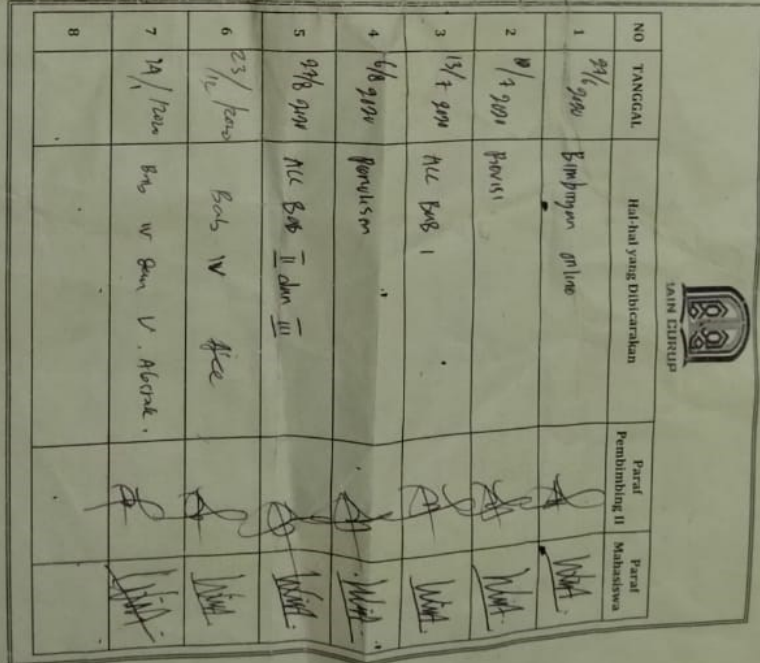 IAIN CURUP
NO TANGGAL Hal-hal yang Dibicarakan Paraf Pembimbing II Paraf Mahasiswa
1 27/6 2020 Bimbingan online WinA.
2 /7 2020 Revisi WinA.
3 13/7 2020 ACC BAB I WinA.
4 6/8 2020 Penulisan WinA.
5 27/8 2020 ACC Bab II dan III WinA.
6 23/12 /2020 Bab IV Acc WinA.
7 /2020 Bab IV dan V. Abstrak. WinA.
8